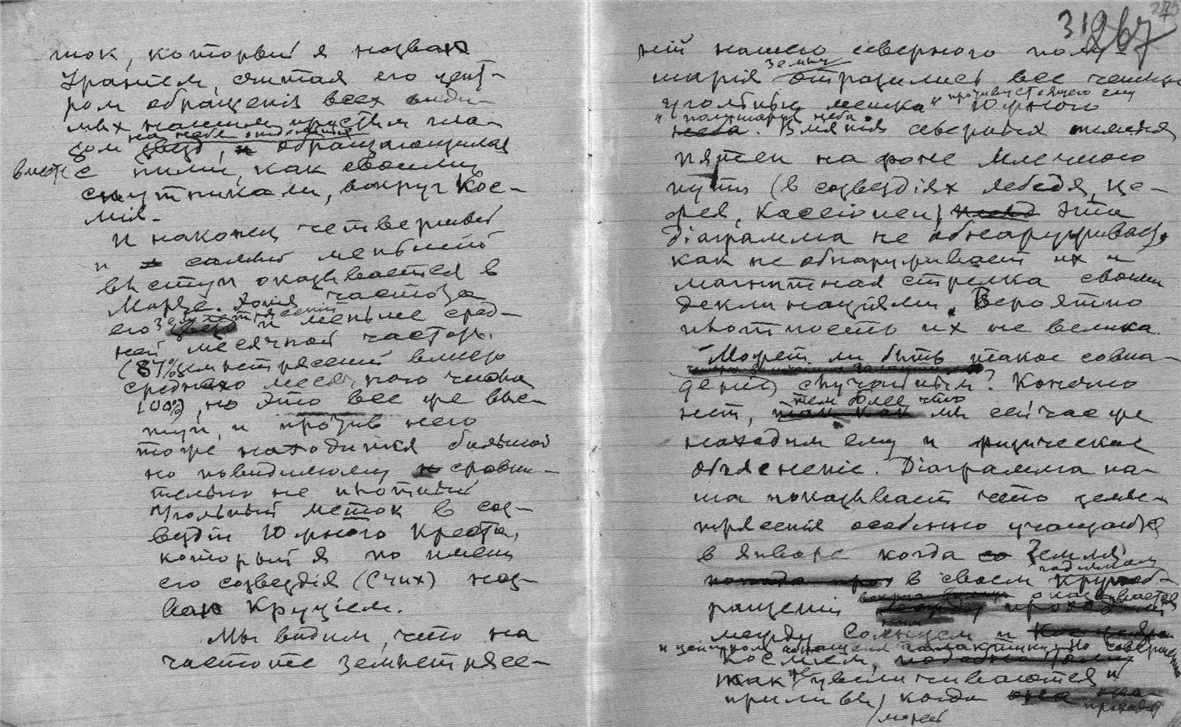 шок, который я назвал
Ураніем, считая его цент-
ром обращенія всех види-
мых нашим простым гла-
на небе
зом звезд, обращающихся
вместе с ними, как своими
спутниками, вокруг Кос-
мія.
И наконец четвертый
и самый меньший
выступ оказывается в
Марте. Хотя частота
его землетрясений и меньше сред-
ней месячной частоты
(87% землетрясений вместо
среднего месячного числа
100%), но это все же выс-
туп, и против него
тоже находится большой
но повидимому сравни-
тельно не плотный
Угольный мешок в соз-
вездіи Южного Креста,
который я по имени
его созвездія (Crux) наз-
вал Круціем.
Мы видим, что на
частоте землетрясе-
31 267
275
ній нашего северного полу-
шарія Земли отразились все четыре
угольных мешка и противустоящего ему Южного
и полушарія неба. Вліянія северных темных
пятен на фоне Млечного
пути (в созвездіях Лебедя, Це-
фея, Кассіопеи) эта
діаграмма не обнаруживает,
как не обнаруживает их и
магнитная стрелка своими
деклинаціями. Вероятно
плотность их не велика.
Может ли быть такое совпа-
деніе случайным? Конечно
нет, тем более что мы сейчас же
находим ему и физическое
объясненіе. Діаграмма на-
ша показывает что земле-
трясенія особенно учащаются
в январе когда Земля
в своем годичном
ращеніи вокруг оказывается
между Солнцем и
и центром обращенія Галактики
Космием, но совершенно
так же увеличиваются и
приливы, когда